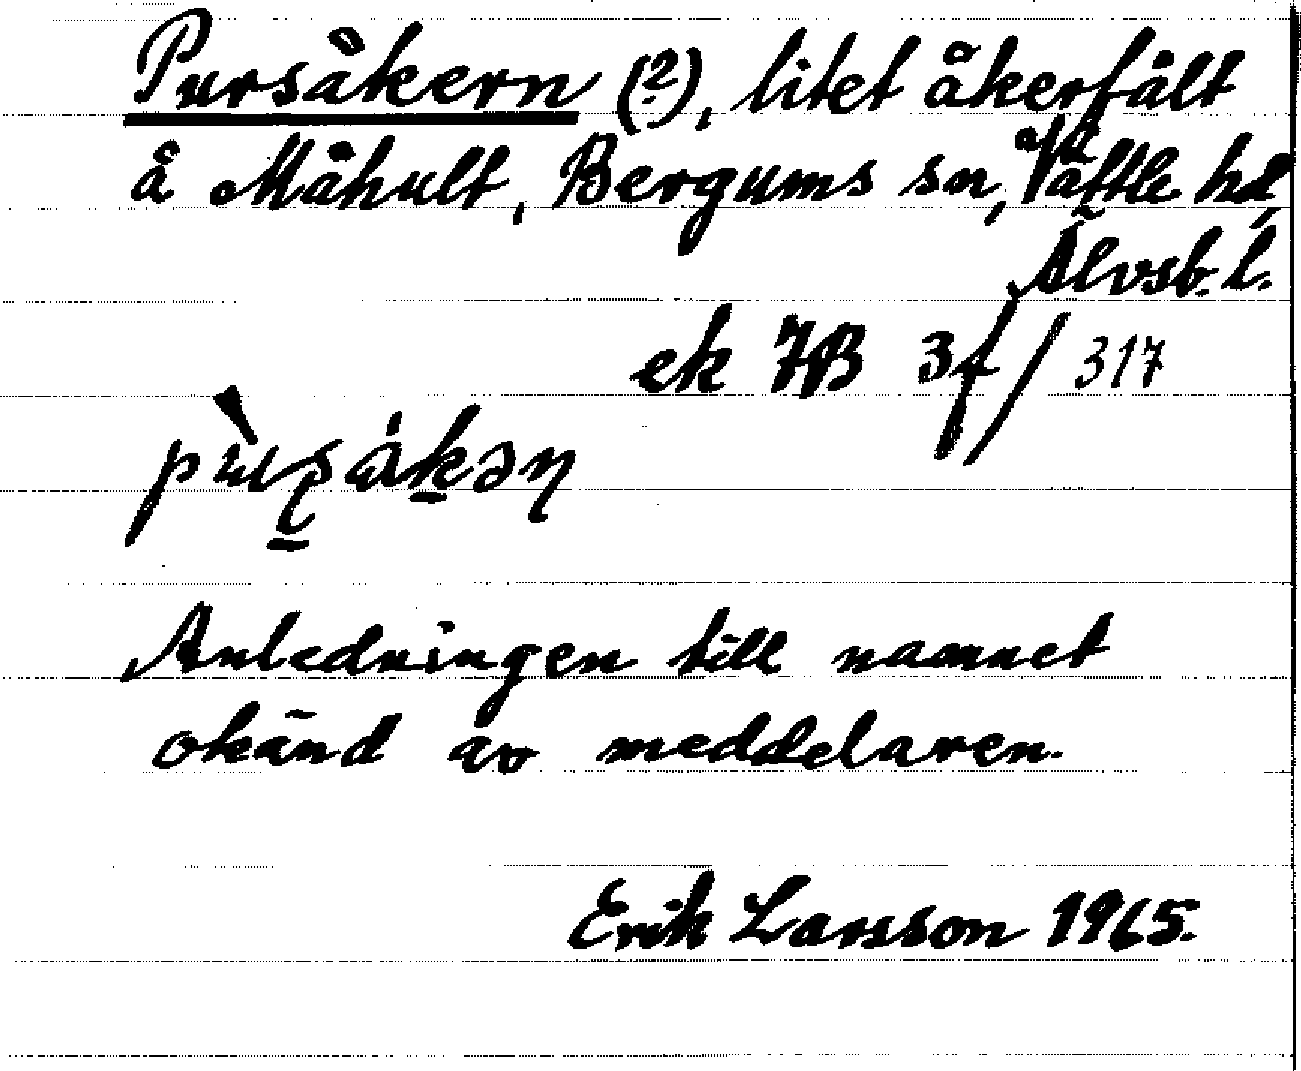 Pursåkern (?), litet åkerfält
å Måhult, Bergums sn, Vättle hd,
Älvsb. l.
ek 7B 3f/317
Anledningen till namnet
okänd av meddelaren.
Erik Larsson 1965.